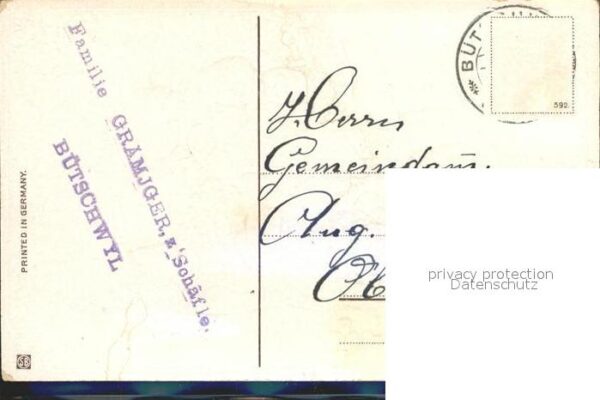 Familie GRÄMIGER, z'Schäfle.
BÜTSCHWYL
PRINTED IN GERMANY.
SB
BÜT
592
Herrn
Gemeindam
Aug.
privacy protection
Datenschutz